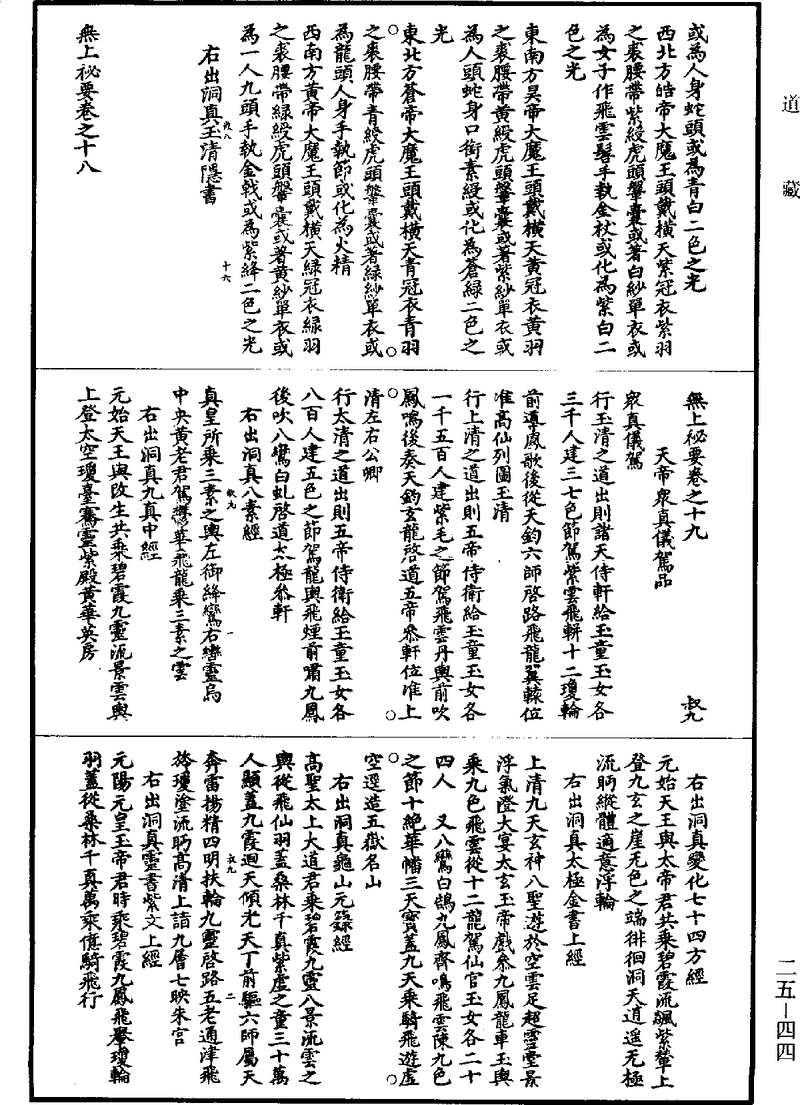 道藏
或為人身蛇頭或為青白二色之光
西北方皓帝大魔王頭戴橫天紫冠衣紫羽
之裘腰帶紫綬虎頭鞶囊或著白紗單衣或
為女子作飛雲髻手執金杖或化為紫白二
色之光
東南方昊帝大魔王頭戴橫天黃冠衣黃羽
之裘腰帶黃綬虎頭鞶囊或著紫紗單衣或
為人頭蛇身口銜素綬或化為蒼綠二色之
光
東北方蒼帝大魔王頭戴橫天青冠衣青羽
之裘腰帶青綬虎頭鞶囊或著綠紗單衣或
為龍頭人身手執節或化為火精
西南方黃帝大魔王頭戴橫天綠冠衣綠羽
之裘腰帶綠綬虎頭鞶囊或著黃紗單衣或
為一人九頭手執金戟或為紫絳二色之光
叔八 十六
右出洞真玉清隱書
無上祕要卷之十八
無上祕要卷之十九 叔九
天帝眾真儀駕品
眾真儀駕
行玉清之道出則諸天侍軒給玉童玉女各
三千人建三七色節駕紫雲飛軿十二瓊輪
前導鳳歌後從天鈞六師啓路飛龍翼轅位
准高仙列圖玉清
行上清之道出則五帝侍衛給玉童玉女各
一千五百人建紫毛之節駕飛雲丹輿前吹
鳳鳴後奏天鈞玄龍啓道五帝參軒位准上
清左右公卿
行太清之道出則五帝侍衛給玉童玉女各
八百人建五色之節駕龍輿飛煙前嘯九鳳
後吹八鸞白虬啓道太極參軒
右出洞真八素經
叔九 一
真皇所乘三素之輿左御絳鸞右轡靈烏
中央黃老君駕鬱華飛龍乘三素之雲
右出洞真九真中經
元始天王與改生共乘碧霞九靈流景雲輿
上登太空瓊臺騫靈紫殿黃華英房
右出洞真變化七十四方經
元始天王與太帝君共乘碧霞流飇紫輦上
登九玄之崖无色之端徘徊洞天逍遥无極
流眄縱體適意浮輪
右出洞真太極金書上經
上清九天玄神八聖遊於空雲足超靈堂景
浮氣澄大宴太玄玉帝戲參九鳳龍車玉輿
乘九色飛雲從十二龍駕仙官玉女各二十
四人 又八鸞白鵠九鳳齊鳴飛雲陳九色
之節十絕華幡三天寶蓋九天乘騎飛遊虛
空逕造五嶽名山
右出洞真龜山元籙經
高聖太上大道君乘碧霞九靈八景流雲之
輿從飛仙羽蓋桑林千真紫虛之童三十萬
人顯蓋九霞迴天傾光天丁前驅六師屬天
叔九 二
奔雷揚精四明扶輪九靈啓路五老通津飛
旍瓊塗流眄高清上詣九層七映朱宮
右出洞真靈書紫文上經
元陽元皇玉帝君時乘碧霞九鳳飛轝瓊輪
羽蓋從桑林千真萬乘億騎飛行
二五－四四